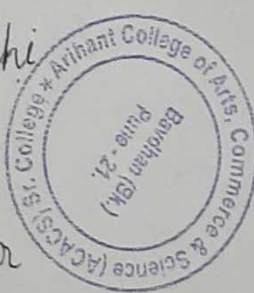 hi
Arihant College of Arts, Commerce & Science (ACACS) Sr. College *
Bavdhan (Bk.)
Pune - 21.
r